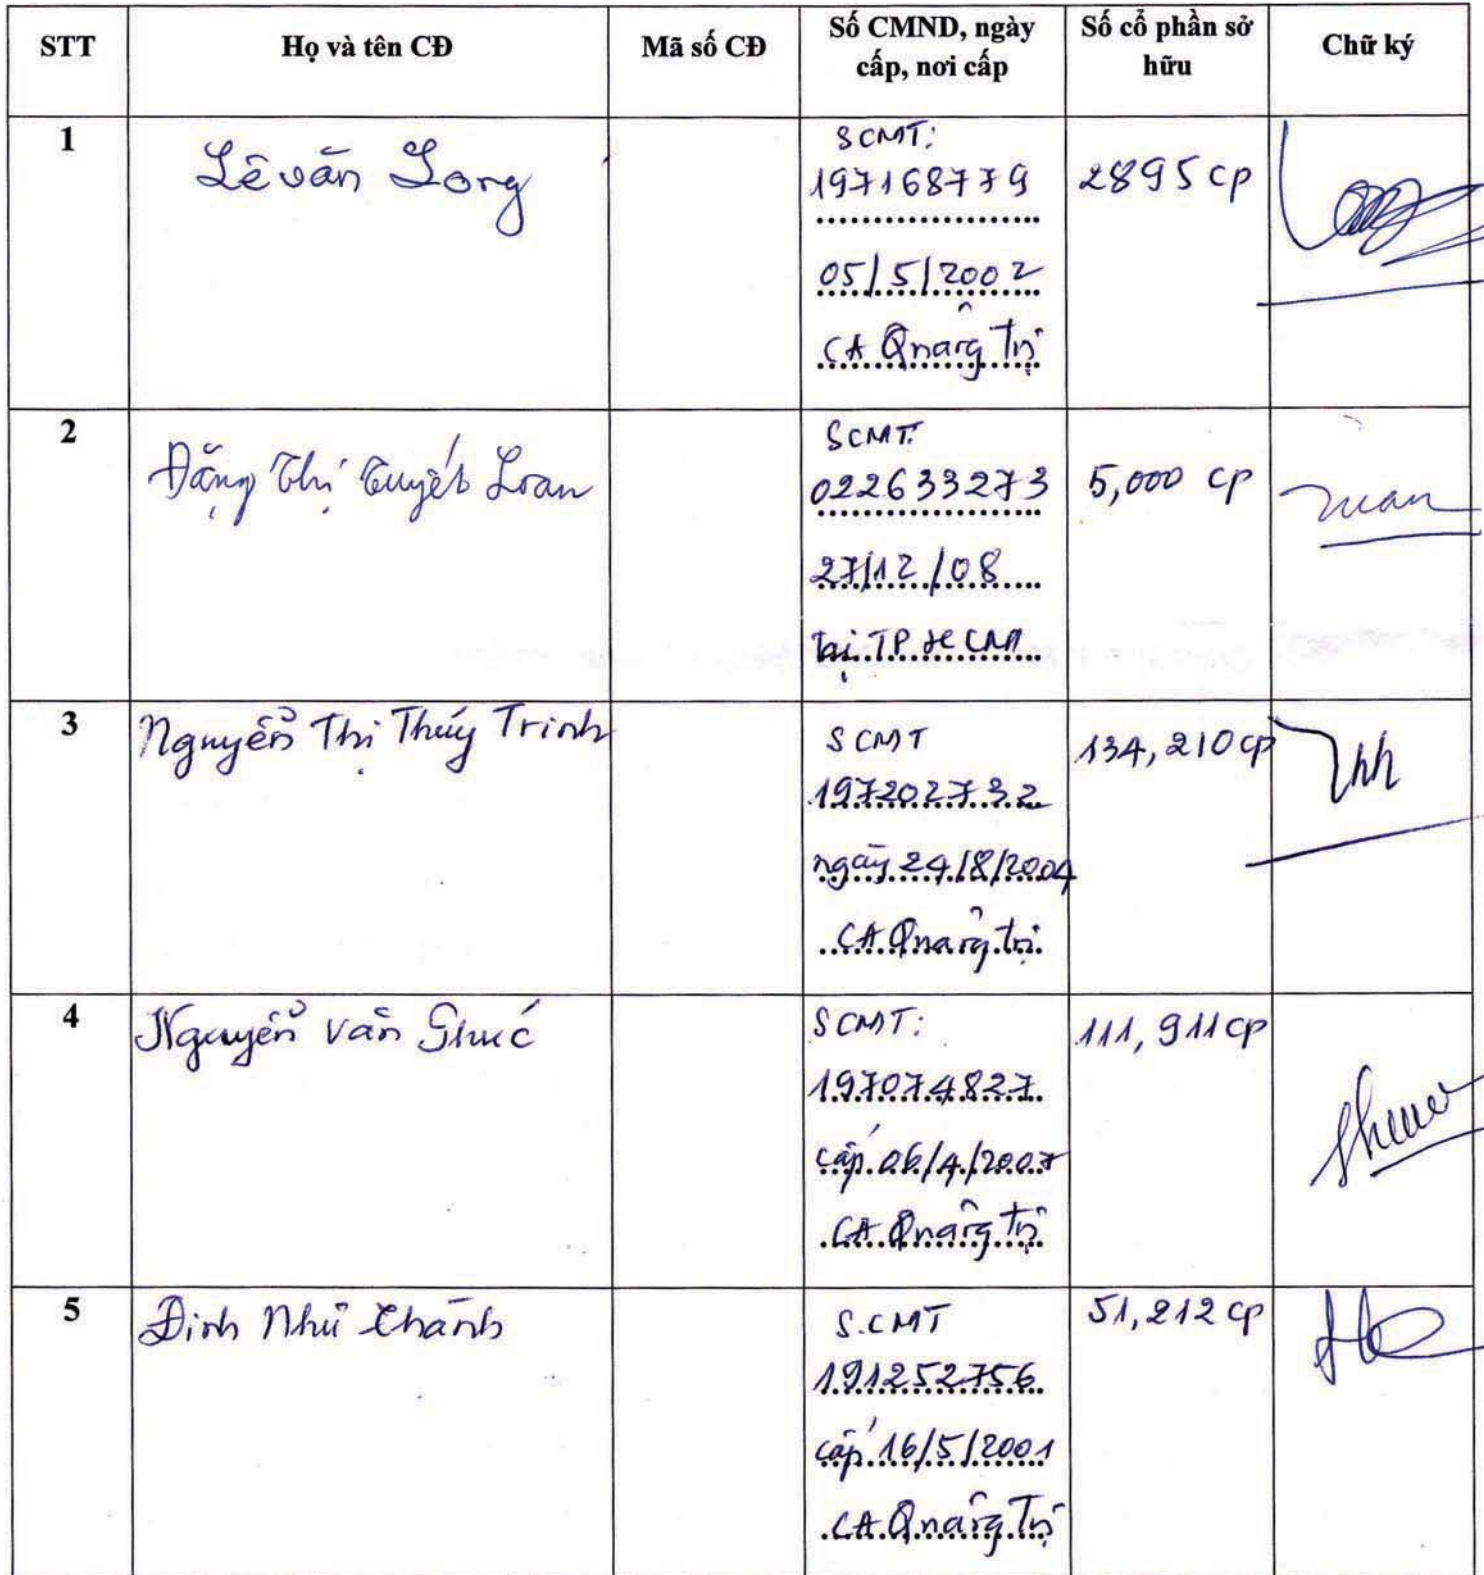 STT
Họ và tên CĐ
Mã số CĐ
Số CMND, ngày
cấp, nơi cấp
Số cổ phần sở
hữu
Chữ ký
1
Lê văn Long
SCMT:
197168779
05/5/2002
CA Quảng Trị
2895 cp
2
Đặng Thị Tuyết Loan
SCMT:
022633273
27/12/08
Tại TP HCM
5,000 cp
3
Nguyễn Thị Thúy Trinh
SCMT
197202732
ngày 24/8/2004
CA Quảng trị
134,210 cp
4
Nguyễn Văn
SCMT:
197074827
cấp 06/4/2007
CA Quảng Trị
111,911 cp
5
Đinh Như Khánh
S.CMT
191252756
cấp 16/5/2001
CA Quảng Trị
51,212 cp